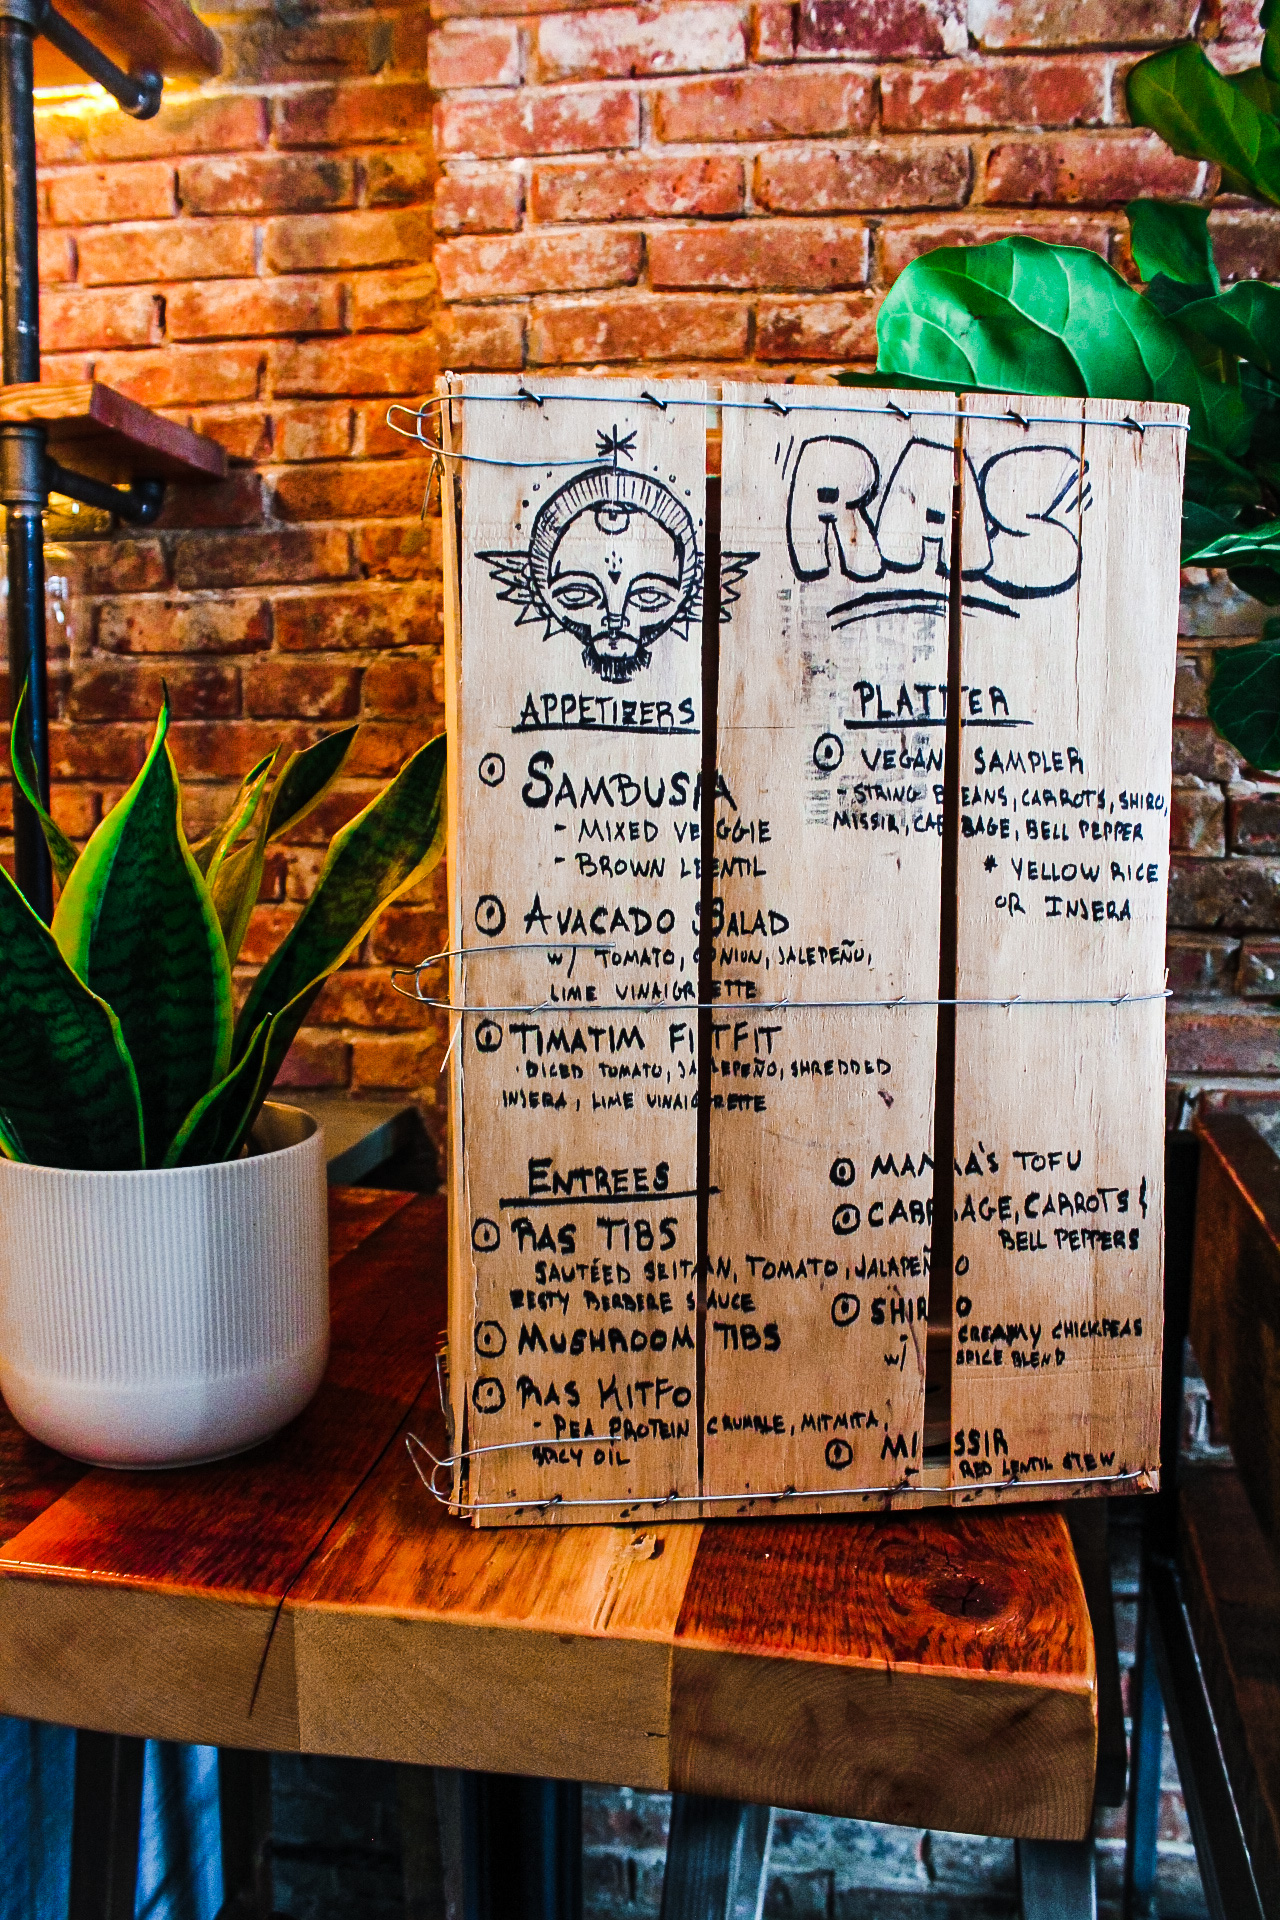 RAS
APPETIZERS
SAMBUSA
- MIXED VEGGIE
- BROWN LENTIL
AVACADO SALAD
w/ TOMATO, ONION, JALEPEÑO,
LIME VINAIGRETTE
TIMATIM FITFIT
· DICED TOMATO, JALEPEÑO, SHREDDED
INJERA, LIME VINAIGRETTE
PLATTER
VEGAN SAMPLER
- STRING BEANS, CARROTS, SHIRO,
MISSIR, CABBAGE, BELL PEPPER
* YELLOW RICE
OR INJERA
ENTREES
RAS TIBS
SAUTÉED SEITAN, TOMATO, JALAPEÑO
ZESTY BERBERE SAUCE
MUSHROOM TIBS
RAS KITFO
- PEA PROTEIN CRUMBLE, MITMITA,
SPICY OIL
MAMA'S TOFU
CABBAGE, CARROTS &
BELL PEPPERS
SHIRO
w/ CREAMY CHICKPEAS
SPICE BLEND
MISSIR
RED LENTIL STEW